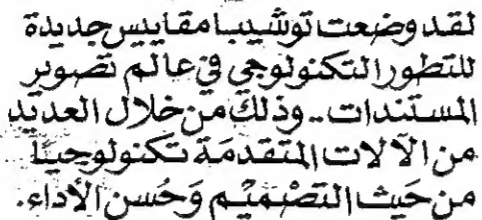 لقد وضعت توشيبا مقاييس جديدة
للتطور التكنولوجي في عالم تصوير
المستندات .. وذلك من خلال العديد
من الآلات المتقدمة تكنولوجيًا
من حيث التصميم وحسن الأداء.